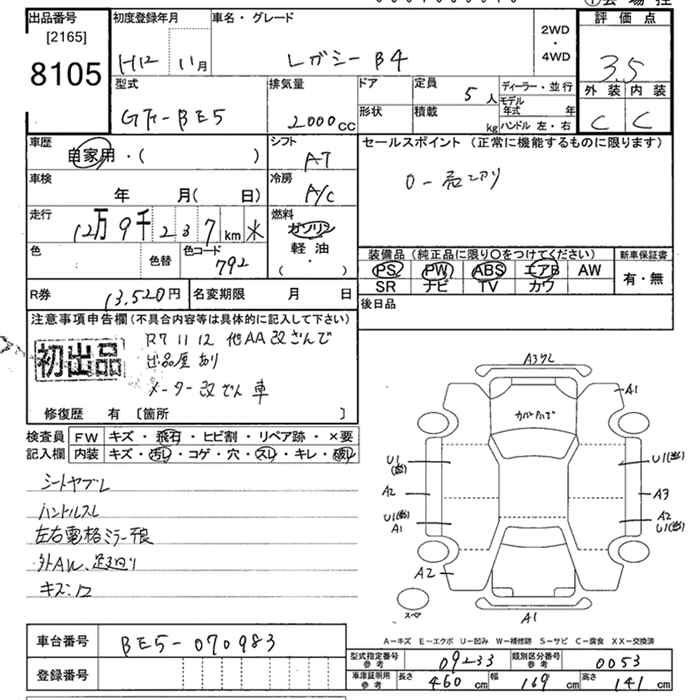 出品番号
[2165]
8105
初度登録年月
H12 11月
車名・グレード
レガシー B4
2WD
・
4WD
評価点
3.5
外装 内装
C C
型式
GF-BE5
排気量
2000cc
ドア
形状
定員
5人
積載
kg
ディーラー・並行
モデル年式 年
ハンドル 左・右
車歴
自家用・( )
シフト
AT
セールスポイント (正常に機能するものに限ります)
車検
年 月( 日)
冷房
A/C
走行
12万9千237km
燃料
ガソリン
軽油
( ・ )
色
色替
色コード
792
装備品 (純正品に限り○をつけてください)
新車保証書
PS PW ABS エアB AW
SR ナビ TV カワ
有・無
R券
13,520円
名変期限 月 日
後日品
注意事項申告欄(不具合内容等は具体的に記入して下さい)
初出品
R7 11 12 他AA改ざんで
出品歴あり
メーター改ざん車
修復歴 有 〔箇所 〕
検査員
記入欄
FW キズ・飛石・ヒビ割・リペア跡・×要
内装 キズ・汚レ・コゲ・穴・スレ・キレ・破レ
シートヤブレ
ハンドルスレ
左右電格ミラー不良
外AW、足まわり
A3サビ
A1
U1
U1
A2
A3
U1
A1
A2
U1
A2
A1
スペア
A－キズ E－エクボ U－凹み W－補修跡 S－サビ C－腐食 XX－交換済
車台番号
BE5-070983
登録番号
型式指定番号
参考
09233
類別区分番号
参考
0053
車庫証明用
参考
長さ 460cm 幅 169cm 高さ 141cm